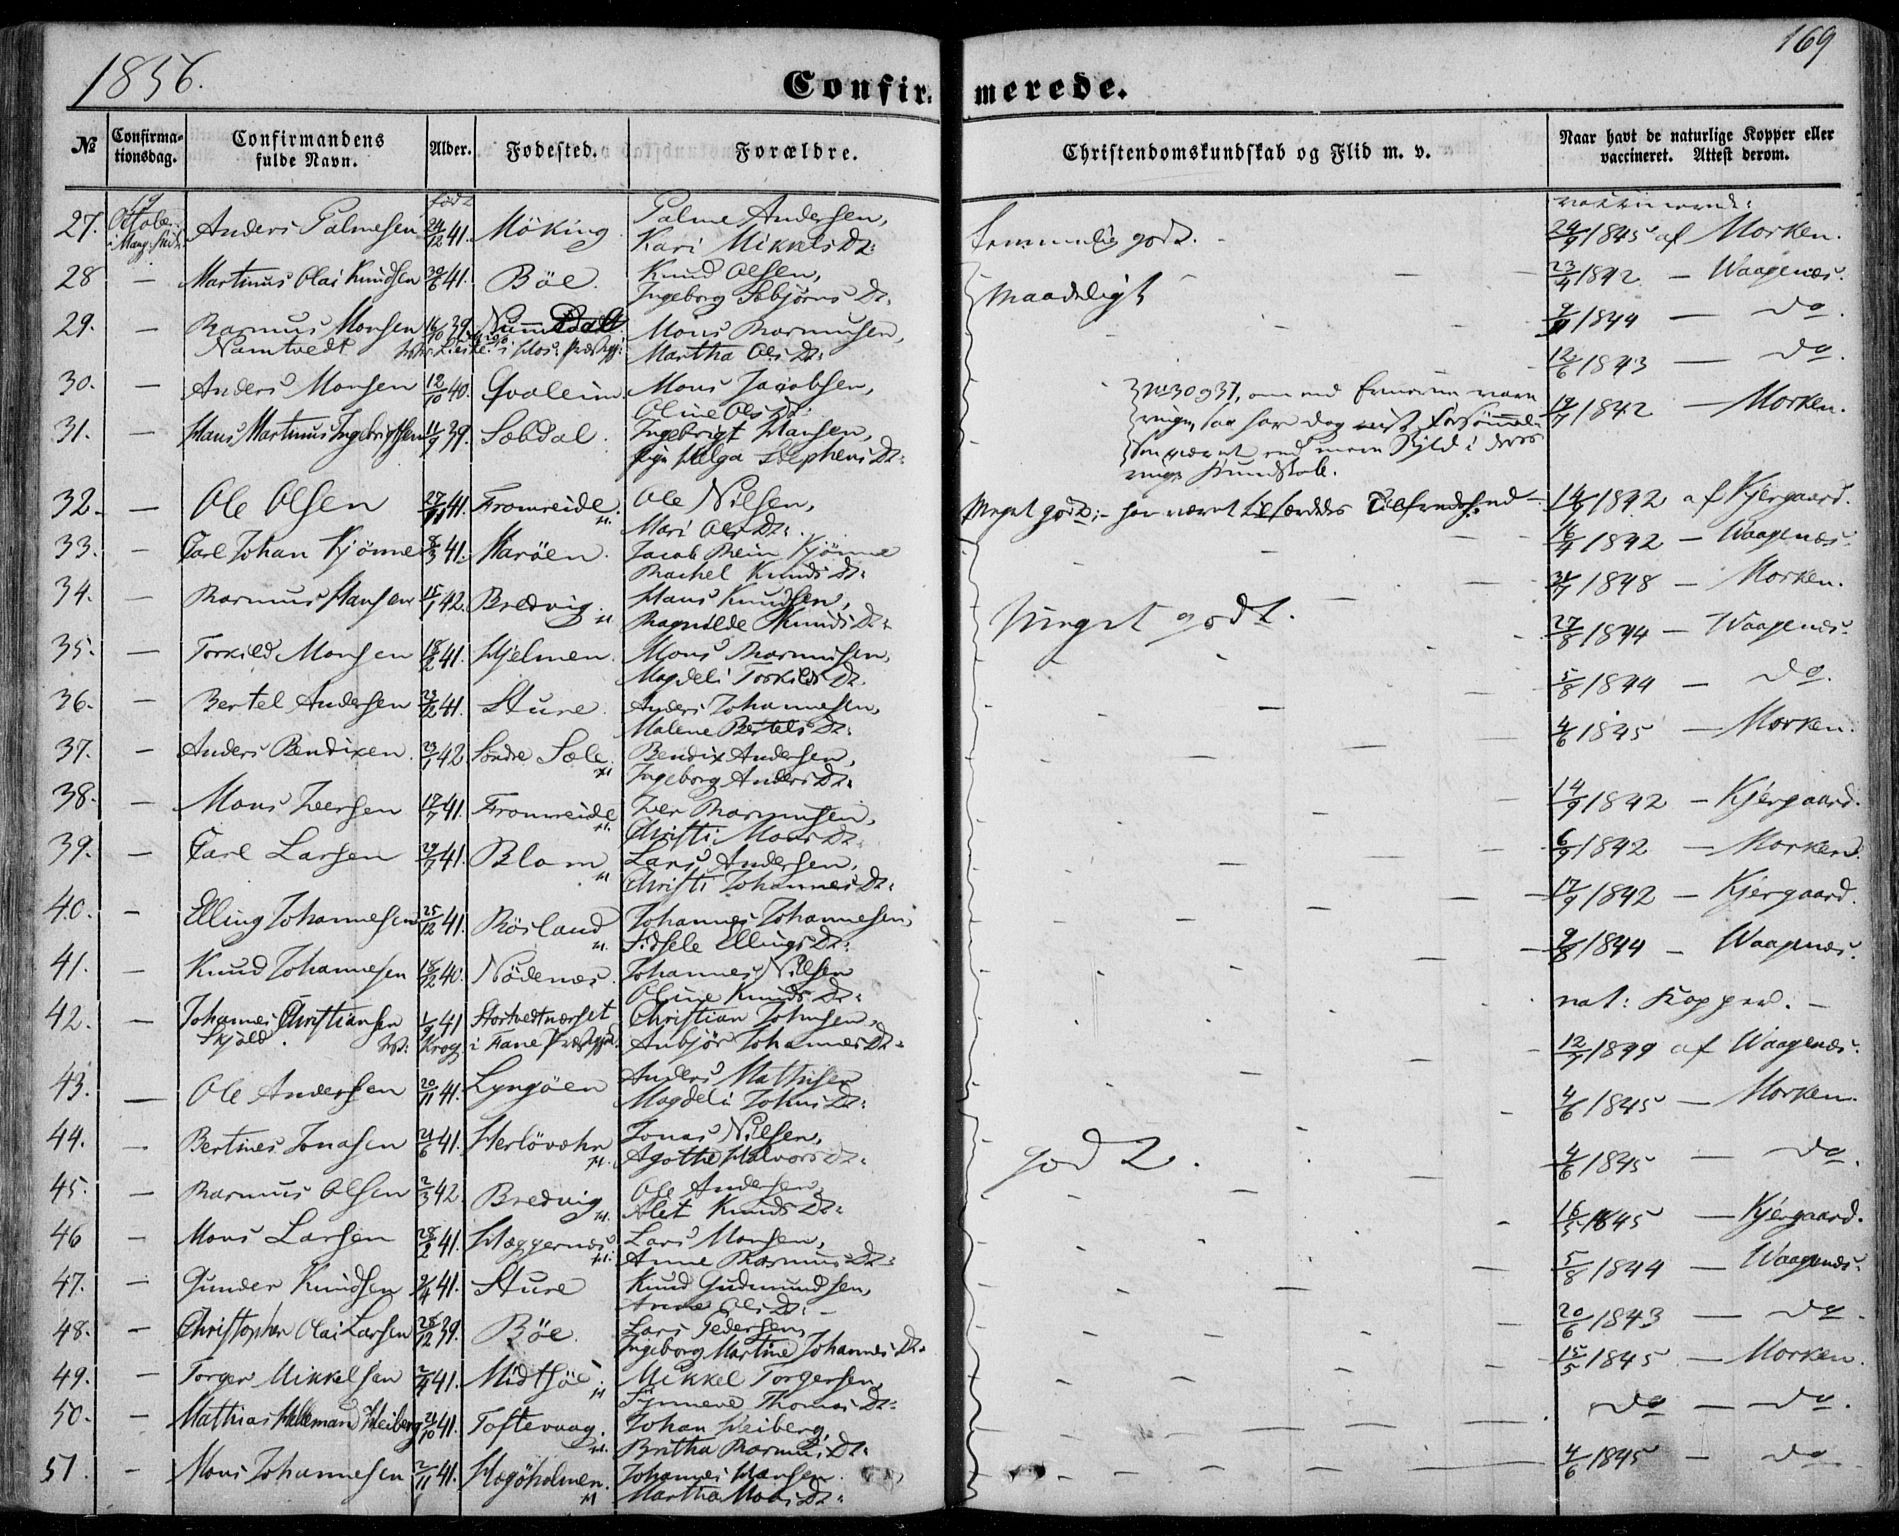 1856.
169
Confir-merede.
№ Confirma-tionsdag. Confirmandens fulde Navn. Alder. Fødested. Forældre. Christendomskundskab og Flid m. v. Naar havt de naturlige Kopper eller vaccineret. Attest derom.
født vaccinerede:
27. 19 October Anders Palmesen 24/12 41. Möking Palme Andersen, Kari MikkelsDt: temmelig godt. 24/9 1845 af Morken.
28 — Martinus Olai Knudsen 41. Böe. Knud Olsen, Ingeborg Dt: Maadeligt 23/4 1842 — Waagenæs.
29. — Rasmus Monsen Namtvedt 16/10 39. Mons Rasmusen, Martha OlsDt: 1844 — do
12/6 1843 — do.
30. — Anders Monsen 12/10 40. Qvaleim Mons Jacobsen, Oline OlsDt: No 30 og 31, om end
31. — Hans Martinus Ingebrigtsen 11/9 39. Sæbdal. Ingebrigt Hansen, Helga StephensDt: 1842 — Morken.
Kundskab.
32. — Ole Olsen 41. Fromreide. Ole Nilsen, Mari OlsDt: Meget godt; — har været 14/9 1842 af Kjergaard.
33. — Carl Johan Kjönne 8/3 41. Marøen. Jacob Rein Kjönne Rachel KnudsDt: 16/4 1842 — Waagenæs.
34. — Rasmus Hansen 15/1 42. Bredvig Hans Knudsen, Ragnilde KnudsDt: Meget godt. 1848 — Morken.
35. — Torkild Monsen 18/2 41. Hjelmen. Mons Rasmusen, Magdeli TorkildsDt. 27/8 1844 — Waagenæs.
36. — Bertel Andersen 23/12 41. Sture. Anders Johannesen, Malene BertelsDt: 5/8 1844 — do.
37. — Anders Bendixen. 23/1 42 Söndre Sæle Bendix Andersen, Ingeborg AndersDt: 4/6 1845 — Morken.
38. — Mons Iversen 17/7 41. Fromreide Iver Rasmusen, Christi MonsDt: 14/9 1842 — Kjergaard.
39. — Carl Larsen 29/7 41. Blom Lars Andersen, Christi JohannesDt: 6/9 1842 — Morken.
40. — Elling Johannesen 25/12 41. Rösland Johannes Johannesen, Sidsele EllingsDt: 17/9 1842 — Kjergaard.
41. — Knud Johannesen 18/12 40. Nödenæs. Johannes Nilsen Oline KnudsDt: 9/8 1844 — Waagenæs.
42. — Johannes Christiansen Skjold. 1/9 41 i Fane Christian Johnsen, Anbjör JohannesDt: nat: Kopper. —
43. — Ole Andersen 20/11 41. Lyngöen Anders Mathisen Magdeli JohnsDt: 12/7 1849 af Waagenæs.
44. — Bertines Jonasen 21/6 41. Herlövær Jonas Nilsen, Agathe HalvorsDt: godt. 4/6 1845 — Morken.
45. — Rasmus Olsen 2/3 42. Bredvig Ole Andersen, Alet KnudsDt: 4/6 1845 — do.
46 — Mons Larsen 28/2 41. Hæggernæs Lars Monsen, Anne RasmusDt: 16/5 1845 — Kjergaard.
47. — Gunder Knudsen 41. Sture Knud Gudmundsen, Anne OlsDt: 5/8 1844 — Waagenæs.
48. — Christopher Olai Larsen 28/12 39. Böe. Lars Pedersen, Ingeborg Martine JohannesDt: 20/6 1843 — do.
49. — Torger Mikkelsen 2/4 41. Midtsöe Mikkel Torgersen, Synneve ThomasDt: 15/5 1845 — Morken.
50. — Mathias Heiberg 21/10 41. Toftevaag. Johan Heiberg, Britha RasmusDt: do — do.
51. — Mons Johannesen 2/11 41. Hagöholmen. Johannes Hansen. Martha MonsDt: 4/6 1845 — do